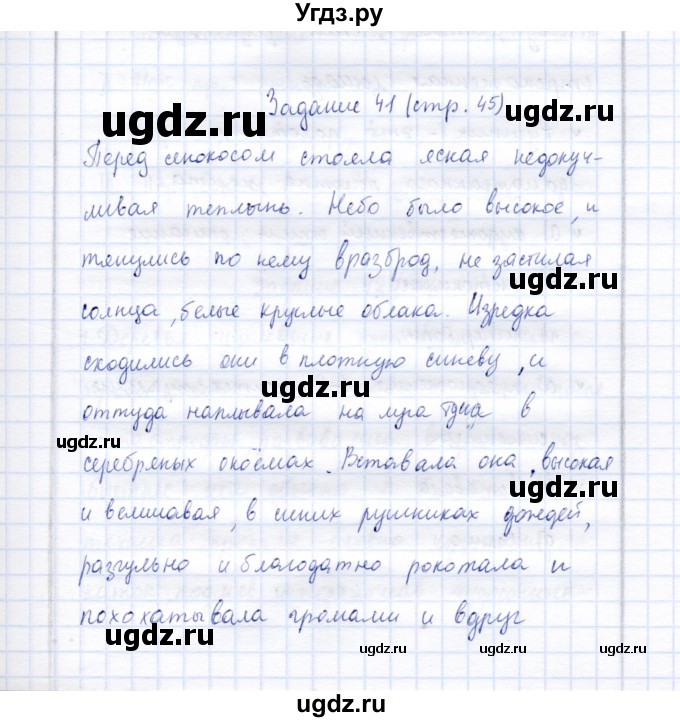 Угдз.ру
Задание 41 (стр. 45)
Перед сенокосом стояла ясная недокуч-
ливая теплынь. Небо было высокое, и
тянулись по нему вразброд, не застилая
солнца, белые круглые облака. Изредка
сходились они в плотную синеву, и
оттуда наплывала на луга туча в
серебряных окоёмах. Вставала она, высокая
и величавая, в синих рушниках дождей,
разгульно и благодатно рокотала и
похохатывала громами и вдруг
ugdz.ru
ugdz.ru
ugdz.ru
ugdz.ru
ugdz.ru
ugdz.ru
ugdz.ru
ugdz.ru
ugdz.ru
ugdz.ru
ugdz.ru
Угдз.ру